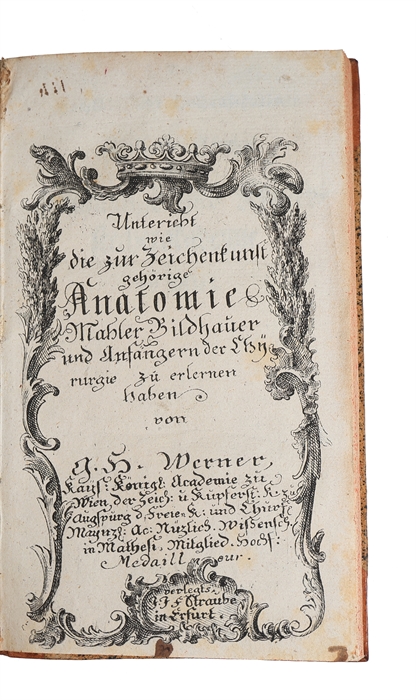 Untericht
wie
die zur Zeichenkunst
gehörige
Anatomie
Mahler Bildhauer
und Anfängern der Chÿ=
rurgie zu erlernen
haben
von
G. H. Werner,
Kaÿs: Königl: Academie zu
Wien, der Zeich: u Kupferst: K. zu
Augspurg d. Freie. K: und Churf:
Maynz: Ac: Nüzlich. Wissensch.
in Mathesi, Mitglied. Hochf:
Medailleur.
verlegts
J. F. Straube
in Erfurt.